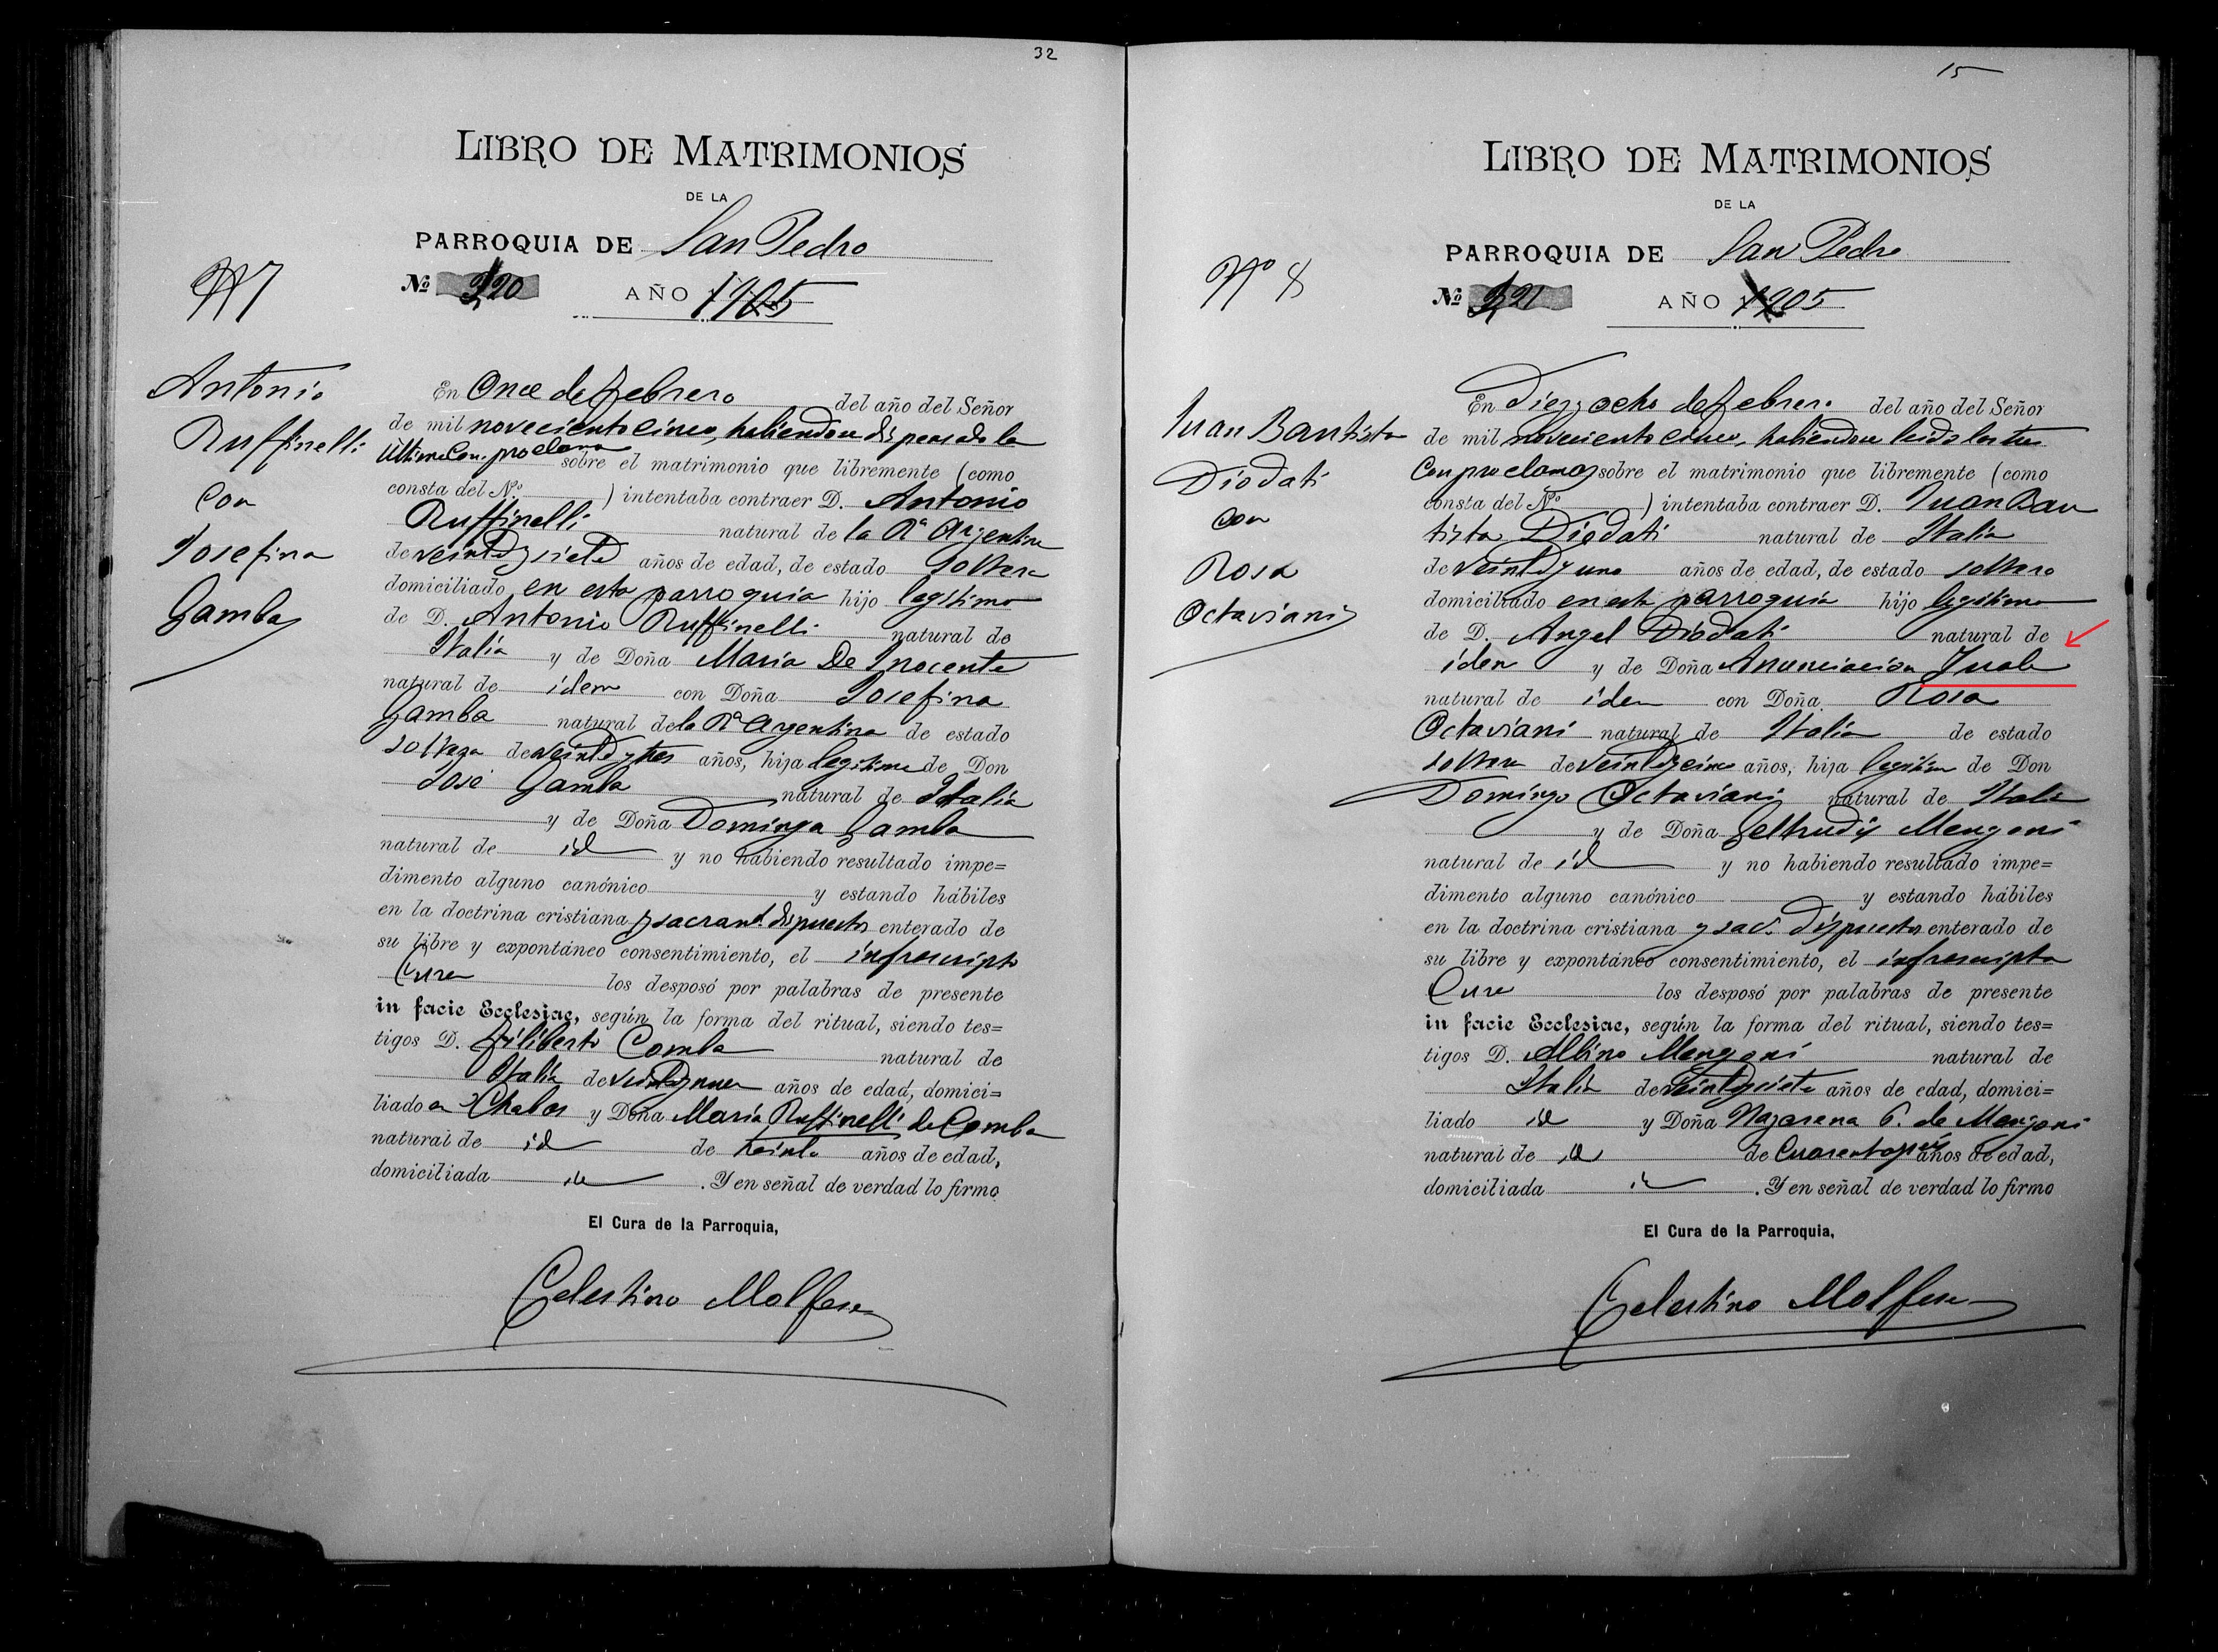 32
LIBRO DE MATRIMONIOS
DE LA
PARROQUIA DE San Pedro
Nº 7
Nº 220 AÑO 1905
Antonio
Ruffinelli
con
Josefina
Gamba
En Once de Febrero del año del Señor
de mil novecientos cinco, habiendose dispensado la
Ultima Con. proclama sobre el matrimonio que libremente (como
consta del N.º ) intentaba contraer D. Antonio
Ruffinelli natural de la Rª Argentina
de veintisiete años de edad, de estado soltero
domiciliado en esta parroquia hijo legitimo
de D. Antonio Ruffinelli natural de
Italia y de Doña Maria De Inocente
natural de idem con Doña Josefina
Gamba natural de la Rª Argentina de estado
soltera de veintidytres años, hija legitima de Don
José Gamba natural de Italia
y de Doña Dominga Gamba
natural de id y no habiendo resultado impe=
dimento alguno canónico y estando hábiles
en la doctrina cristiana y sacramt. dispuestos enterado de
su libre y expontáneo consentimiento, el infrascripto
Cura los desposó por palabras de presente
in facie Ecclesiae, según la forma del ritual, siendo tes=
tigos D. Filiberto Comba natural de
Italia de años de edad, domici=
liado en y Doña Maria Ruffinelli de Comba
natural de id de treinta años de edad,
domiciliada id . Y en señal de verdad lo firmo
El Cura de la Parroquia,
Celestino Molfese
15
LIBRO DE MATRIMONIOS
DE LA
PARROQUIA DE San Pedro
Nº 8
Nº 221 AÑO 1905
Juan Bautista
Diodati
con
Rosa
Octaviani
En Diez y ocho de Febrero del año del Señor
de mil novecientos cinco, habiendose leido las tres
Con proclamas sobre el matrimonio que libremente (como
consta del N.º ) intentaba contraer D. Juan Bau
tista Diodati natural de Italia
de veintidyuno años de edad, de estado soltero
domiciliado en esta parroquia hijo legitimo
de D. Angel Diodati natural de
idem y de Doña Anunciacion
natural de idem con Doña Rosa
Octaviani natural de Italia de estado
soltera de veintidycinco años, hija legitima de Don
Domingo Octaviani natural de Italia
y de Doña Geltrudis Mengoni
natural de id y no habiendo resultado impe=
dimento alguno canónico y estando hábiles
en la doctrina cristiana y sac. dispuestos enterado de
su libre y expontáneo consentimiento, el infrascripto
Cura los desposó por palabras de presente
in facie Ecclesiae, según la forma del ritual, siendo tes=
tigos D. Albino Mengoni natural de
Italia de veintidysiete años de edad, domici=
liado id y Doña Nazarena C. de Mengoni
natural de id de años de edad,
domiciliada id . Y en señal de verdad lo firmo
El Cura de la Parroquia,
Celestino Molfese